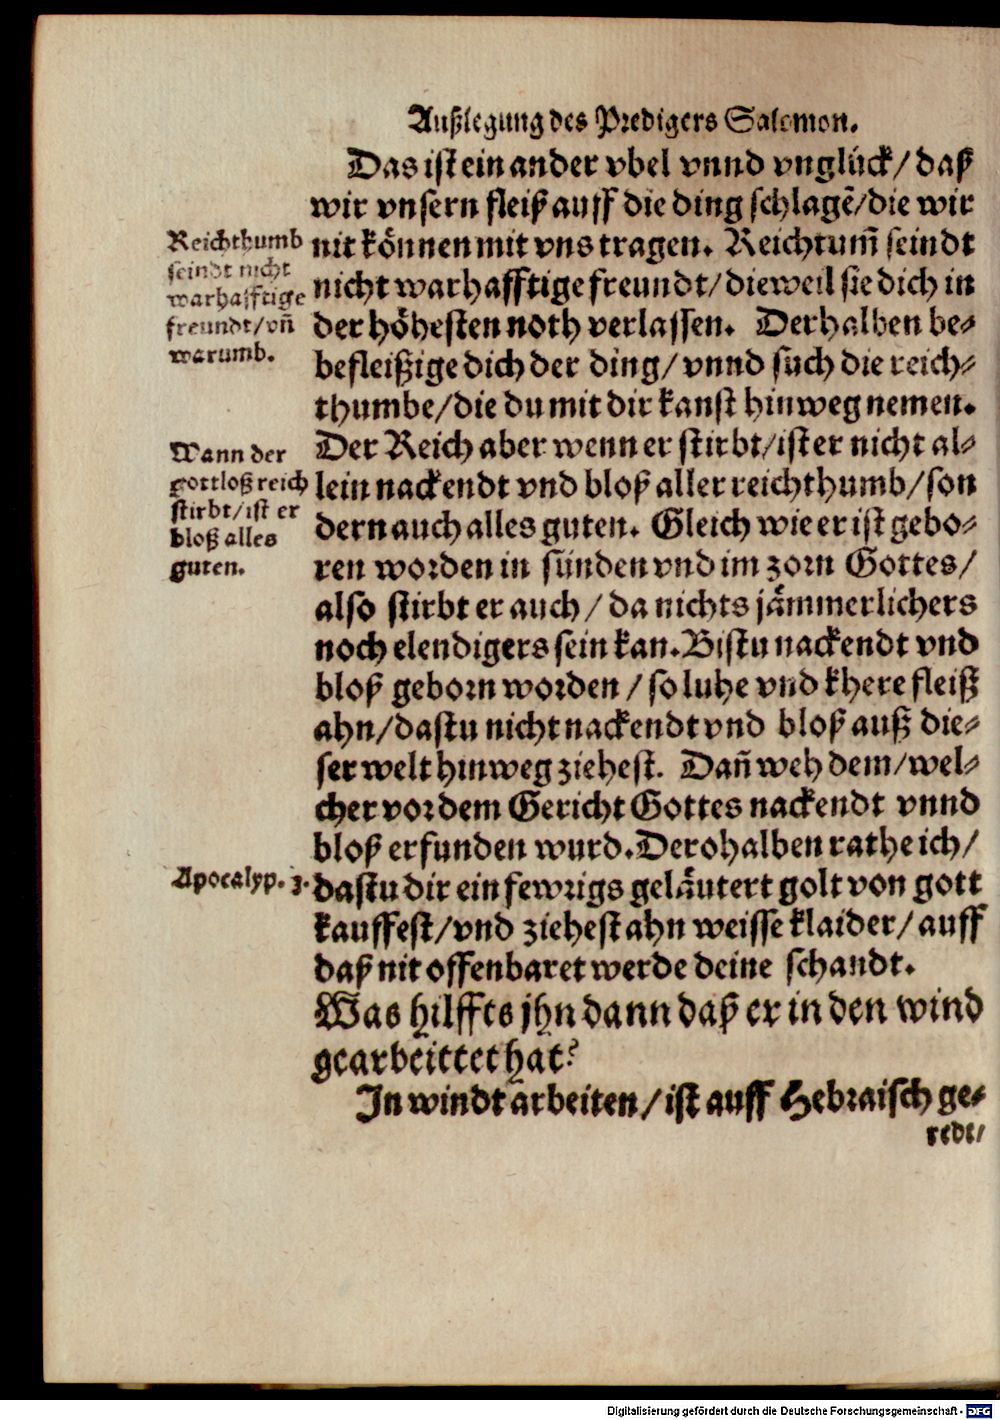 Außlegung des Predigers Salomon.
Das ist ein ander vbel vnnd vnglück/ daß
wir vnsern fleiß auff die ding schlagẽ/die wir
nit können mit vns tragen. Reichtum̃ seindt
nicht warhafftige freundt/dieweil sie dich in
der höhesten noth verlassen. Derhalben be-
befleißige dich der ding/ vnnd such die reich-
thumbe/die du mit dir kanst hinweg nemen.
Der Reich aber wenn er stirbt/ist er nicht al-
lein nackendt vnd bloß aller reichthumb/son
dern auch alles guten. Gleich wie er ist gebo-
ren worden in sünden vnd im zorn Gottes/
also stirbt er auch/ da nichts jämmerlichers
noch elendigers sein kan. Bistu nackendt vnd
bloß geborn worden/ so luhe vnd khere fleiß
ahn/dastu nicht nackendt vnd bloß auß die-
ser welt hinweg ziehest. Dañ weh dem/wel-
cher vor dem Gericht Gottes nackendt vnnd
bloß erfunden wurd. Derohalben rathe ich/
dastu dir ein fewrigs geläutert golt von gott
kauffest/vnd ziehest ahn weisse klaider/ auff
daß nit offenbaret werde deine schandt.
Was hilffts jhn dann daß er in den wind
gearbeittet hat?
In windt arbeiten/ist auff Hebraisch ge-
redt/
Reichthumb
seindt nicht
warhafftige
freundt/vñ
warumb.
Wann der
gottloß reich
stirbt/ist er
bloß alles
guten.
Apocalyp. 3.
Digitalisierung gefördert durch die Deutsche Forschungsgemeinschaft - DFG